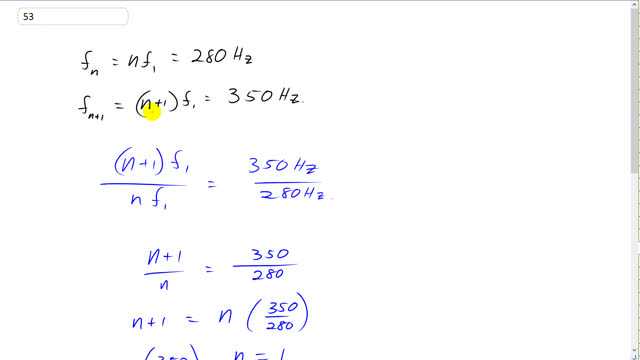 53
fₙ = nf₁ = 280 Hz
fₙ₊₁ = (n+1) f₁ = 350 Hz.
(n+1) f₁ / n f₁ = 350 Hz / 280 Hz.
n+1 / n = 350 / 280
n+1 = n (350/280)
n = 1